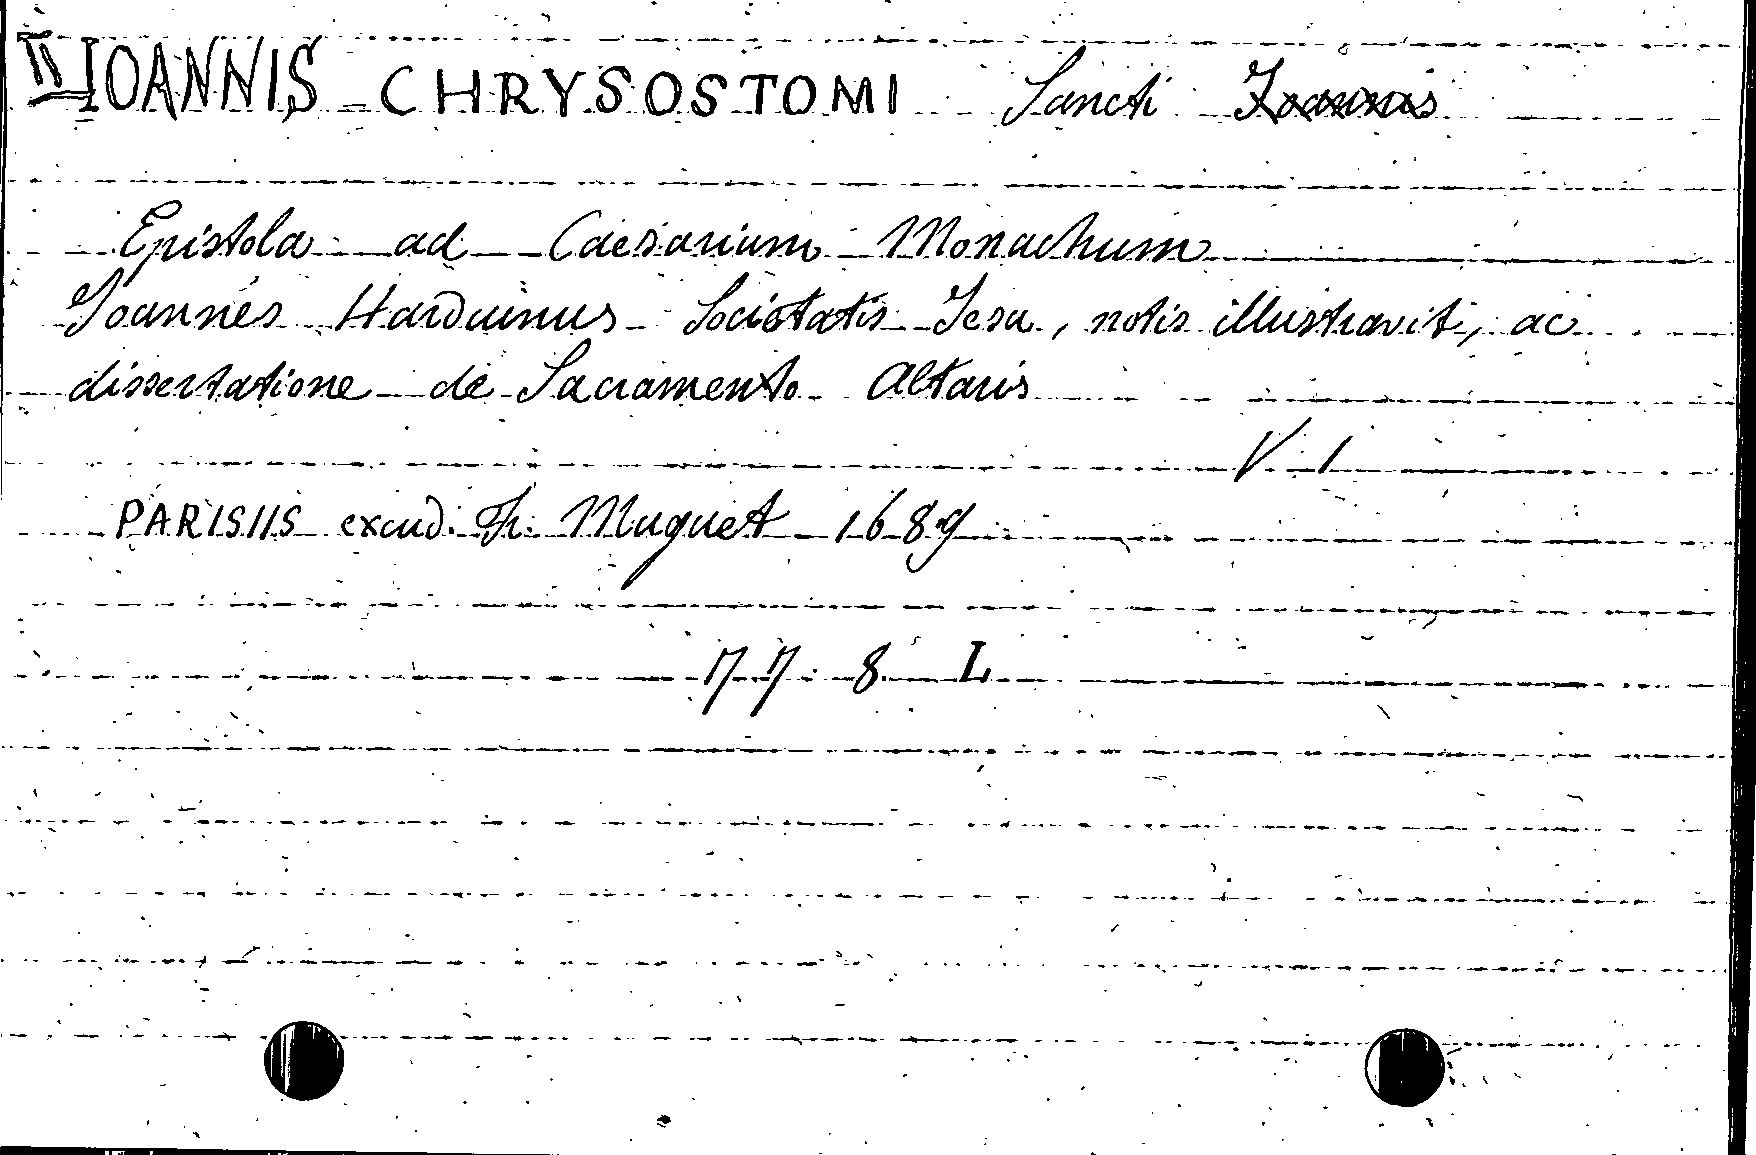 II IOANNIS CHRYSOSTOMI Sancti Ioannis
Epistola ad Caesarium Monachum
Joannes Harduinus Societatis Jesu, notis illustravit, ac
dissertatione de Sacramento Altaris
V. 1
PARISIIS excud. Fr. Muguet 1689
77 8 L